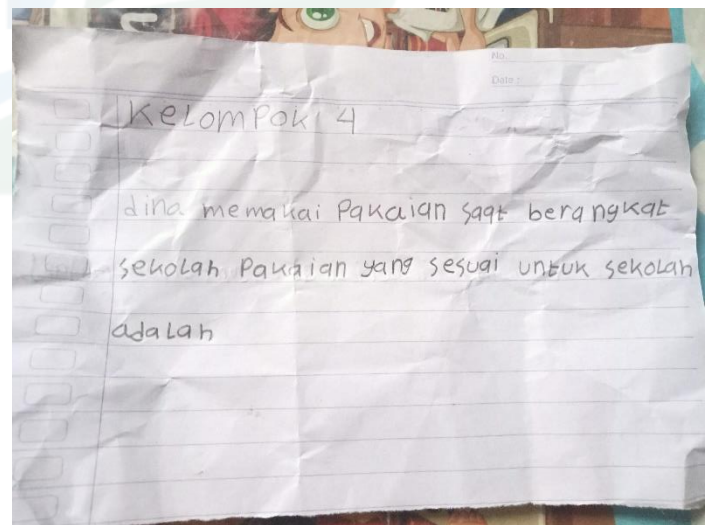 No.
Date :
Kelompok 4
dina memakai Pakaian saat berangkat
sekolah Pakaian yang sesuai untuk sekolah
adalah